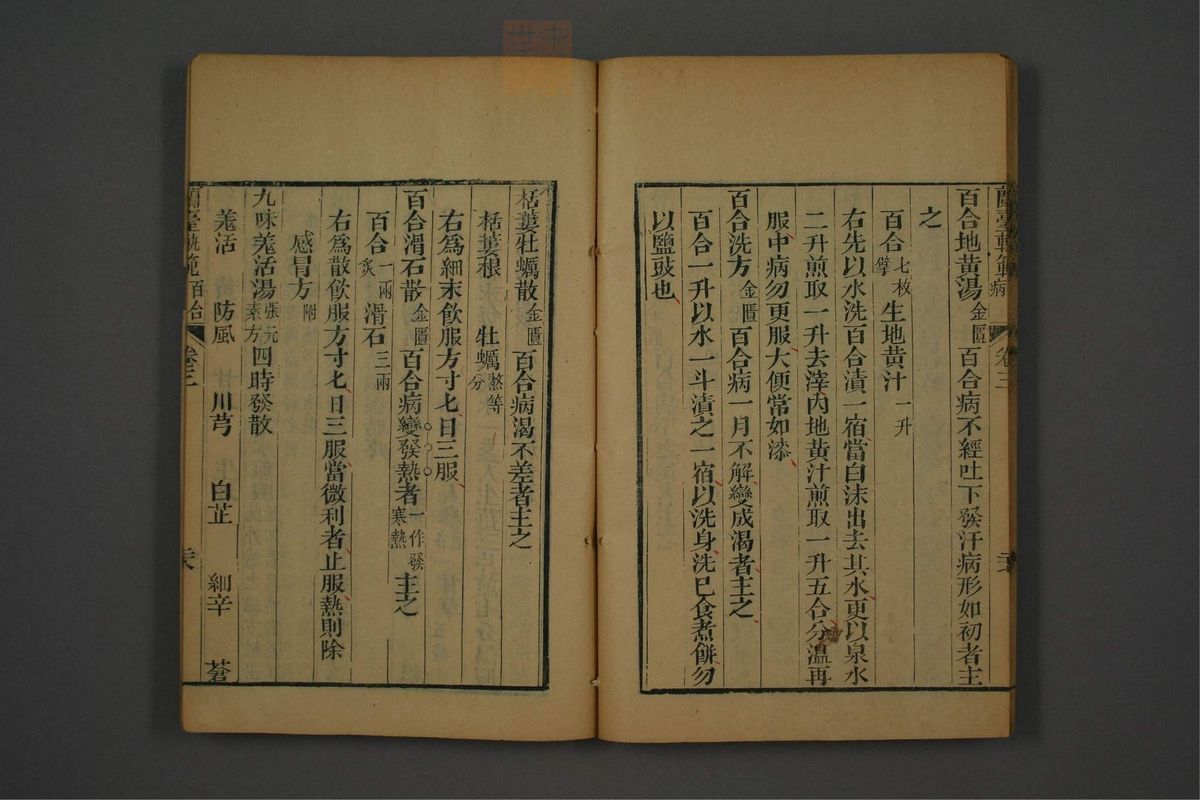 蘭臺軌範 病
卷三
百合地黃湯 金匱 百合病不經吐下發汗病形如初者主
之
百合 七枚擘 生地黃汁 一升
右先以水洗百合漬一宿當白沫出去其水更以泉水
二升煎取一升去滓內地黃汁煎取一升五合分溫再
服中病勿更服大便常如漆
百合洗方 金匱 百合病一月不解變成渴者主之
百合一升以水一斗漬之一宿以洗身洗已食煮餅勿
以鹽豉也
栝蔞牡蠣散 金匱 百合病渴不差者主之
栝蔞根 牡蠣 熬等分
右為細末飲服方寸七日三服
百合滑石散 金匱 百合病變發熱者 一作發寒熱 主之
百合 一兩炙 滑石 三兩
右為散飲服方寸七日三服當微利者止服熱則除
感冒方 附
九味羗活湯 張元素方 四時發散
羗活 防風 川芎 白芷 細辛 蒼
蘭臺軌範
卷三